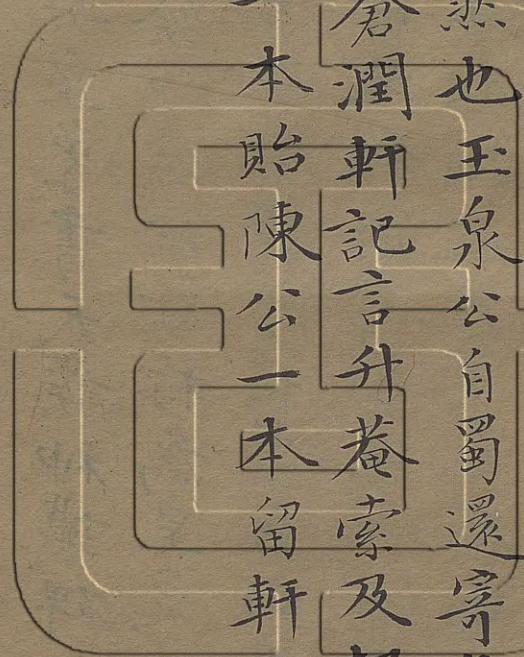 也玉泉公自蜀還寄
倉潤軒記言升菴索及
本貽陳公一本留軒